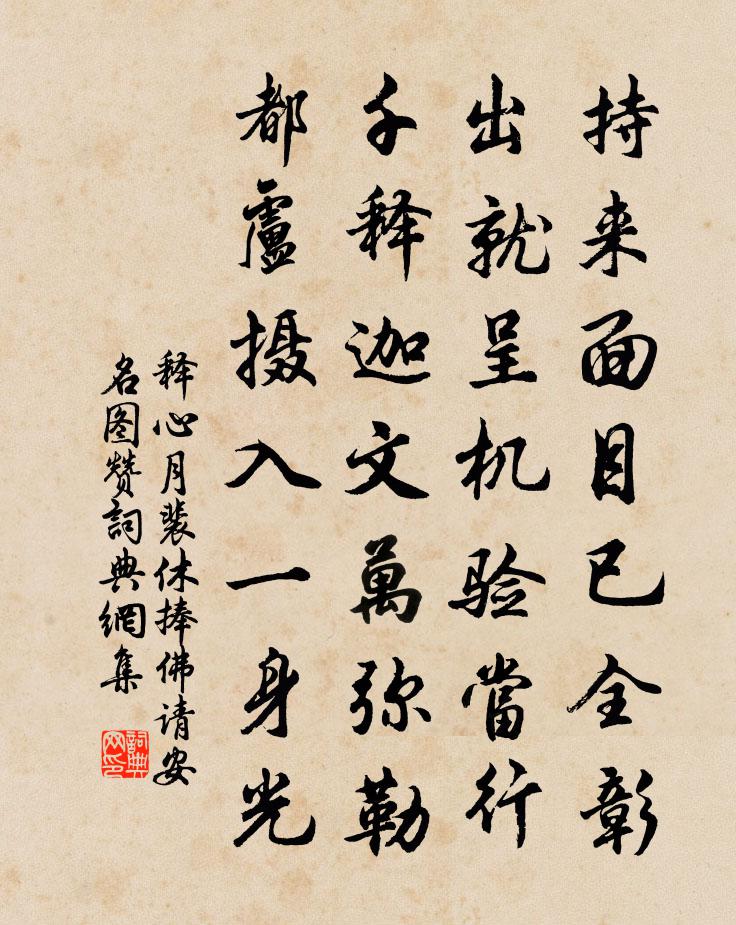 持来面目已全彰
出就呈机验當行
千释迦文萬弥勒
都盧摄入一身光
释心月裴休捧佛请安
名图赞詞典網集
詞典网印